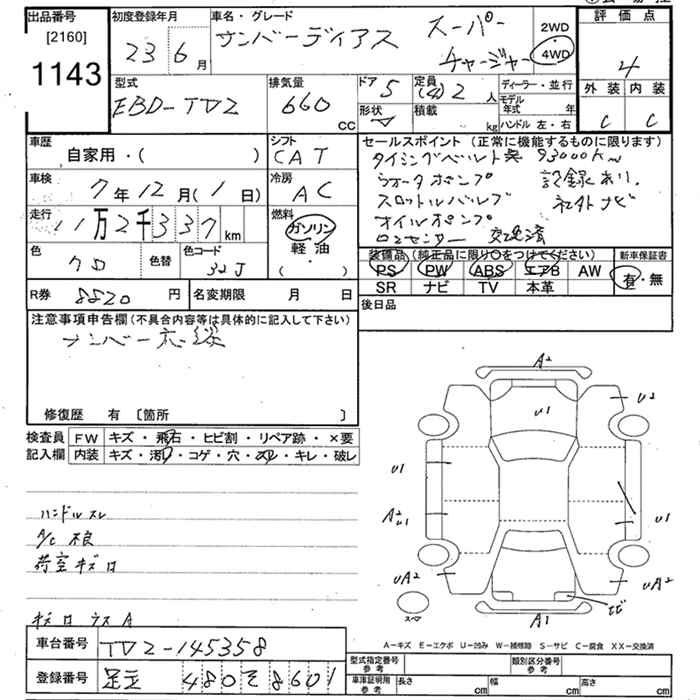 出品番号
[2160]
1143
初度登録年月
23 6 月
車名・グレード
サンバーディアス スーパー
チャージャー
2WD
4WD
評価点
4
外装 内装
C C
型式
EBD-TV2
排気量
660
CC
ドア 5
定員
(4) 2 人
ディーラー・並行
形状
積載
kg
モデル年式 年
ハンドル 左・右
車歴
自家用・( )
シフト
CAT
車検
7 年 12 月 ( 1 日)
冷房
AC
走行
11 万 2 千 3 3 7 km
燃料
ガソリン
軽油
・
( )
色
クロ
色替
色コード
32J
R券 8520 円
名変期限 月 日
セールスポイント (正常に機能するものに限ります)
タイミングベルト 93000km
ウォータポンプ 記録あり
スロットルバルブ 社外ナビ
オイルポンプ
O2センサー 交換済
装備品 (純正品に限り○をつけてください)
PS PW ABS エアB AW
SR ナビ TV 本革
新車保証書
有・無
後日品
注意事項申告欄 (不具合内容等は具体的に記入して下さい)
ナンバー
修復歴 有 〔箇所 〕
検査員
記入欄
FW キズ・飛石・ヒビ割・リペア跡・×要
内装 キズ・汚れ・コゲ・穴・スレ・キレ・破レ
ハンドルスレ
A/C 不良
荷室キズロ
キズロ ウスA
A2
U1
U2
U1
A2
U1
U1
UA2
UA2
ヒビ
A1
スペア
A-キズ E-エクボ U-凹み W-補修跡 S-サビ C-腐食 XX-交換済
車台番号 TV2-145358
登録番号 足立 480 そ 8601
型式指定番号
参考
類別区分番号
参考
車庫証明用
参考
長さ cm
幅 cm
高さ cm